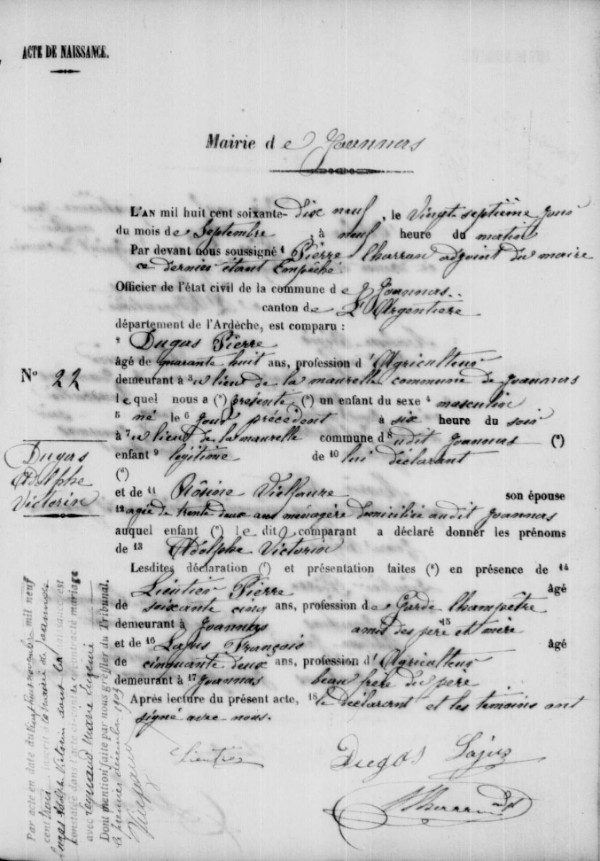 ACTE DE NAISSANCE.
Mairie de Joannas
L'AN mil huit cent soixante-dix neuf, le vingt septième jour
du mois de Septembre, à neuf heure du matin
Par devant nous soussigné 1 Pierre Charran adjoint du maire
ce dernier étant Empêché
Officier de l'état civil de la commune de Joannas
canton de L'Argentière
département de l'Ardèche, est comparu :
2 Dugas Pierre
âgé de quarante huit ans, profession d'Agriculteur
demeurant à 3 lieu de la maurelle commune de Joannas
lequel nous a (*) présenté (*) un enfant du sexe 4 masculin
5 né le 6 jour précédent à six heure du soir
à 7 lieu de la maurelle commune d 8 udit Joannas (*)
enfant 9 légitime de 10 lui déclarant
(*)
et de 11 Rosine son épouse
12 agée de trente deux ans ménagère domiciliée audit Joannas
auquel enfant (*) le dit comparant a déclaré donner les prénoms
de 13 Adolphe Victorin
Lesdites déclaration (*) et présentation faites (*) en présence de 14
Lientier Pierre âgé
de soixante cinq ans, profession de Garde Champêtre
demeurant à Joannas 15 amis des père et mère
et de 16 Lajus François âgé
de cinquante deux ans, profession d'Agriculteur
demeurant à 17 Joannas beau frère du père
Après lecture du présent acte, 18 le déclarant et les témoins ont
signé avec nous.
Lientier Dugas
N° 22
Dugas
Adolphe
Victorin
Par acte en date du vingt huit novembre mil neuf
cent trois inscrit à la mairie de Joannas
Dugas Adolphe Victorin dont la naissance est
constatée dans l'acte ci-contre, a contracté mariage
avec Marie Eugénie
Dont mention faite par nous greffier du Tribunal,
le premier décembre 1903